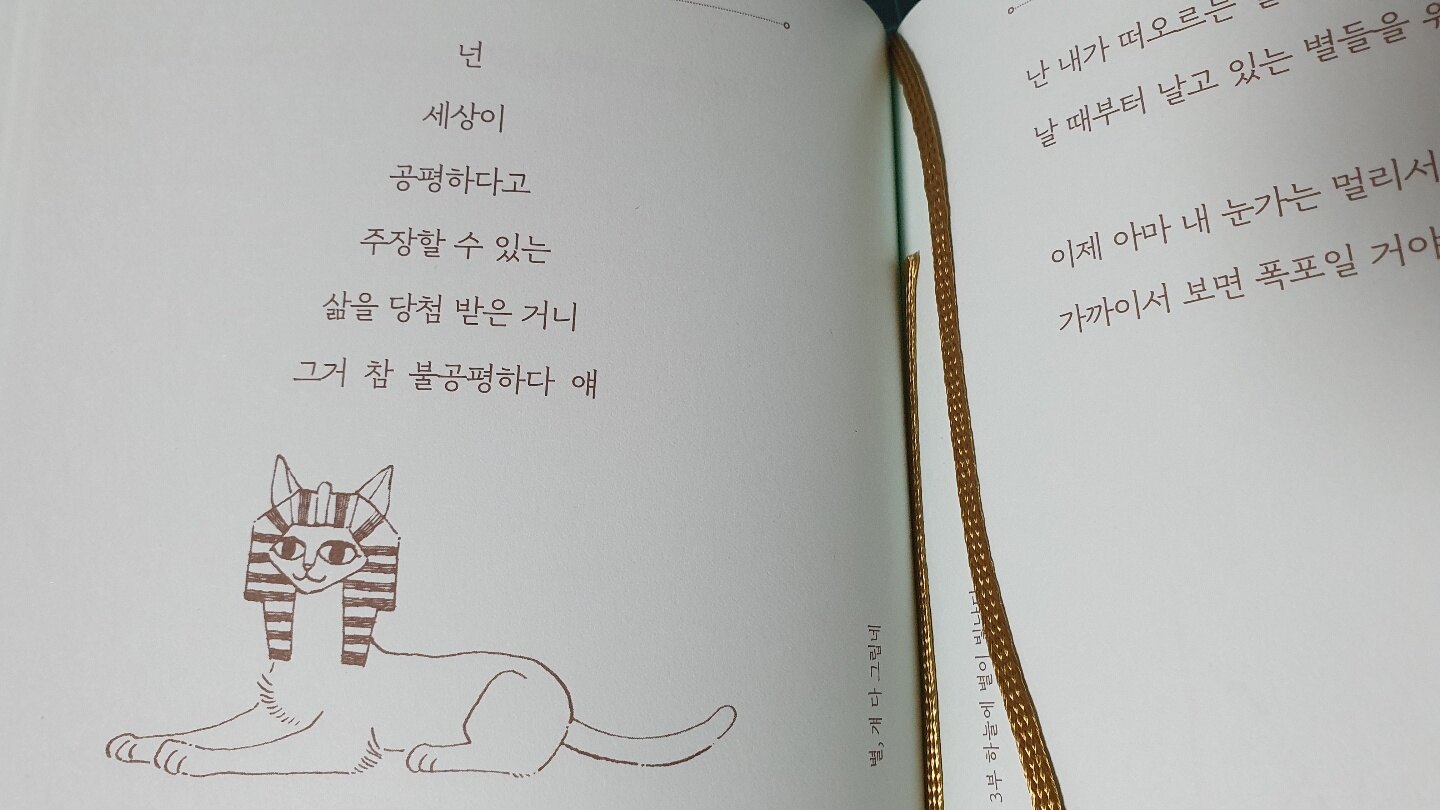 넌
세상이
공평하다고
주장할 수 있는
삶을 당첨 받은 거니
그거 참 불공평하다 얘
별, 개 다 그립네
난 내가 떠오르는
날 때부터 날고 있는 별들을
이제 아마 내 눈가는 멀리서
가까이서 보면 폭포일 거야
3부 하늘에 별이 빛난다